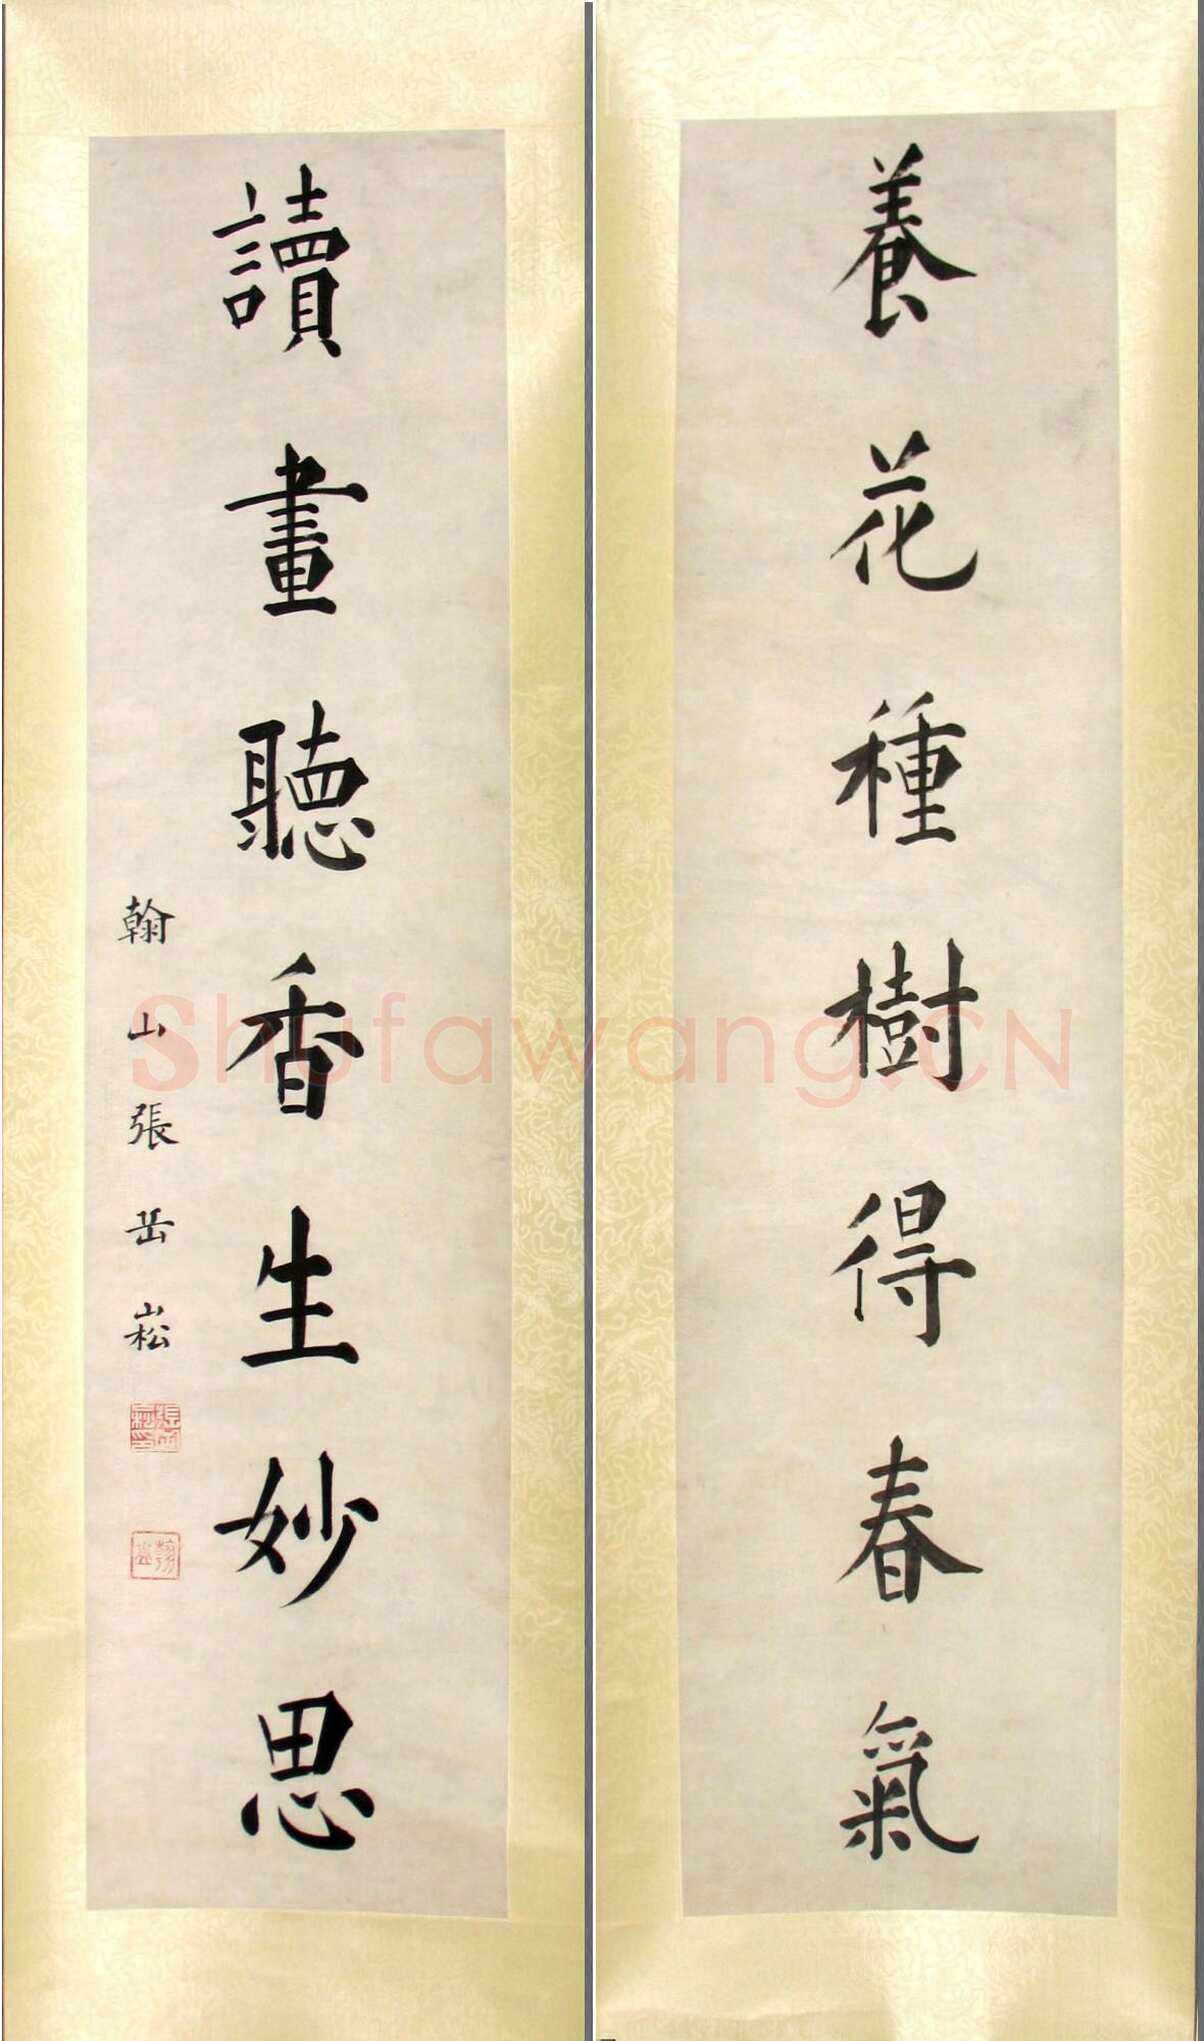 養花種樹得春氣
讀畫聽香生妙思
翰山張岳崧
Shufawang.CN